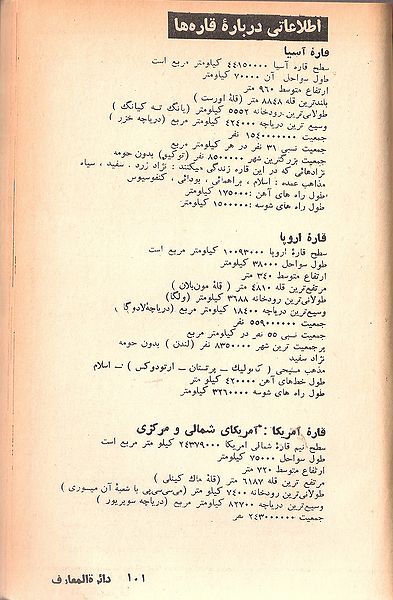 اطلاعاتی دربارهٔ قاره‌ها
قارهٔ آسیا
سطح قاره آسیا ۴۴۱۵۰۰۰۰ کیلومتر مربع است
طول سواحل آن ۷۰۰۰۰ کیلومتر
ارتفاع متوسط ۹۶۰ متر
بلندترین قله ۸۸۴۸ متر (قلهٔ اورست)
طولانی‌ترین رودخانه ۵۵۵۲ کیلومتر (یانگ تسه کیانگ)
وسیع ترین دریاچه ۴۲۴۰۰۰ کیلومتر مربع (دریاچه خزر)
جمعیت ۱۵۴۰۰۰۰۰۰۰ نفر
جمعیت نسبی ۳۱ نفر در هر کیلومتر مربع
جمعیت بزرگترین شهر ۸۵۰۰۰۰۰ نفر (توکیو) بدون حومه
نژادهائی که در این قاره زندگی میکنند : نژاد زرد ، سفید ، سیاه
مذاهب عمده : اسلام ، براهمائی ، بودائی ، کنفوسیوس
طول راه های آهن : ۱۷۵۰۰۰ کیلومتر
طول راه های شوسه : ۱۵۰۰۰۰۰ کیلومتر
قارهٔ اروپا
سطح قارهٔ اروپا ۱۰۰۹۳۰۰۰ کیلومتر مربع است
طول سواحل ۳۸۰۰۰ کیلومتر
ارتفاع متوسط ۳۴۰ متر
مرتفع‌ترین قله ۴۸۱۰ متر (قلهٔ مون‌بلان)
طولانی‌ترین رودخانه ۳۶۸۸ کیلومتر (ولگا)
وسیع‌ترین دریاچه ۱۸۴۰۰ کیلومتر مربع (دریاچهٔ لادوگا)
جمعیت ۵۵۹۰۰۰۰۰۰ نفر
جمعیت نسبی ۵۵ نفر در کیلومتر مربع
پرجمعیت ترین شهر ۸۳۵۰۰۰۰ نفر (لندن) بدون حومه
نژاد سفید
مذهب مسیحی (کاتولیک – پرتستان – ارتودوکس) – اسلام
طول خطهای آهن ۴۲۰۰۰۰ کیلو متر
طول راه های شوسه ۳۲۶۰۰۰۰ کیلومتر
قارهٔ آمریکا : آمریکای شمالی و مرکزی
سطح نیم قارهٔ شمالی امریکا ۲۴۳۷۹۰۰۰ کیلو متر مربع است
طول سواحل ۷۵۰۰۰ کیلومتر
ارتفاع متوسط ۷۲۰ متر
مرتفع ترین قله ۶۱۸۷ متر (قلهٔ ماك کینلی)
طولانی‌ترین رودخانه ۷۴۰۰ کیلو متر (می‌سی‌سی‌پی با شعبهٔ آن میسوری)
وسیع‌ترین دریاچه ۸۲۷۰۰ کیلومتر مربع (دریاچه سوپریور)
جمعیت ۲۴۳۰۰۰۰۰۰ نفر
۱۰۱ دائرةالمعارف